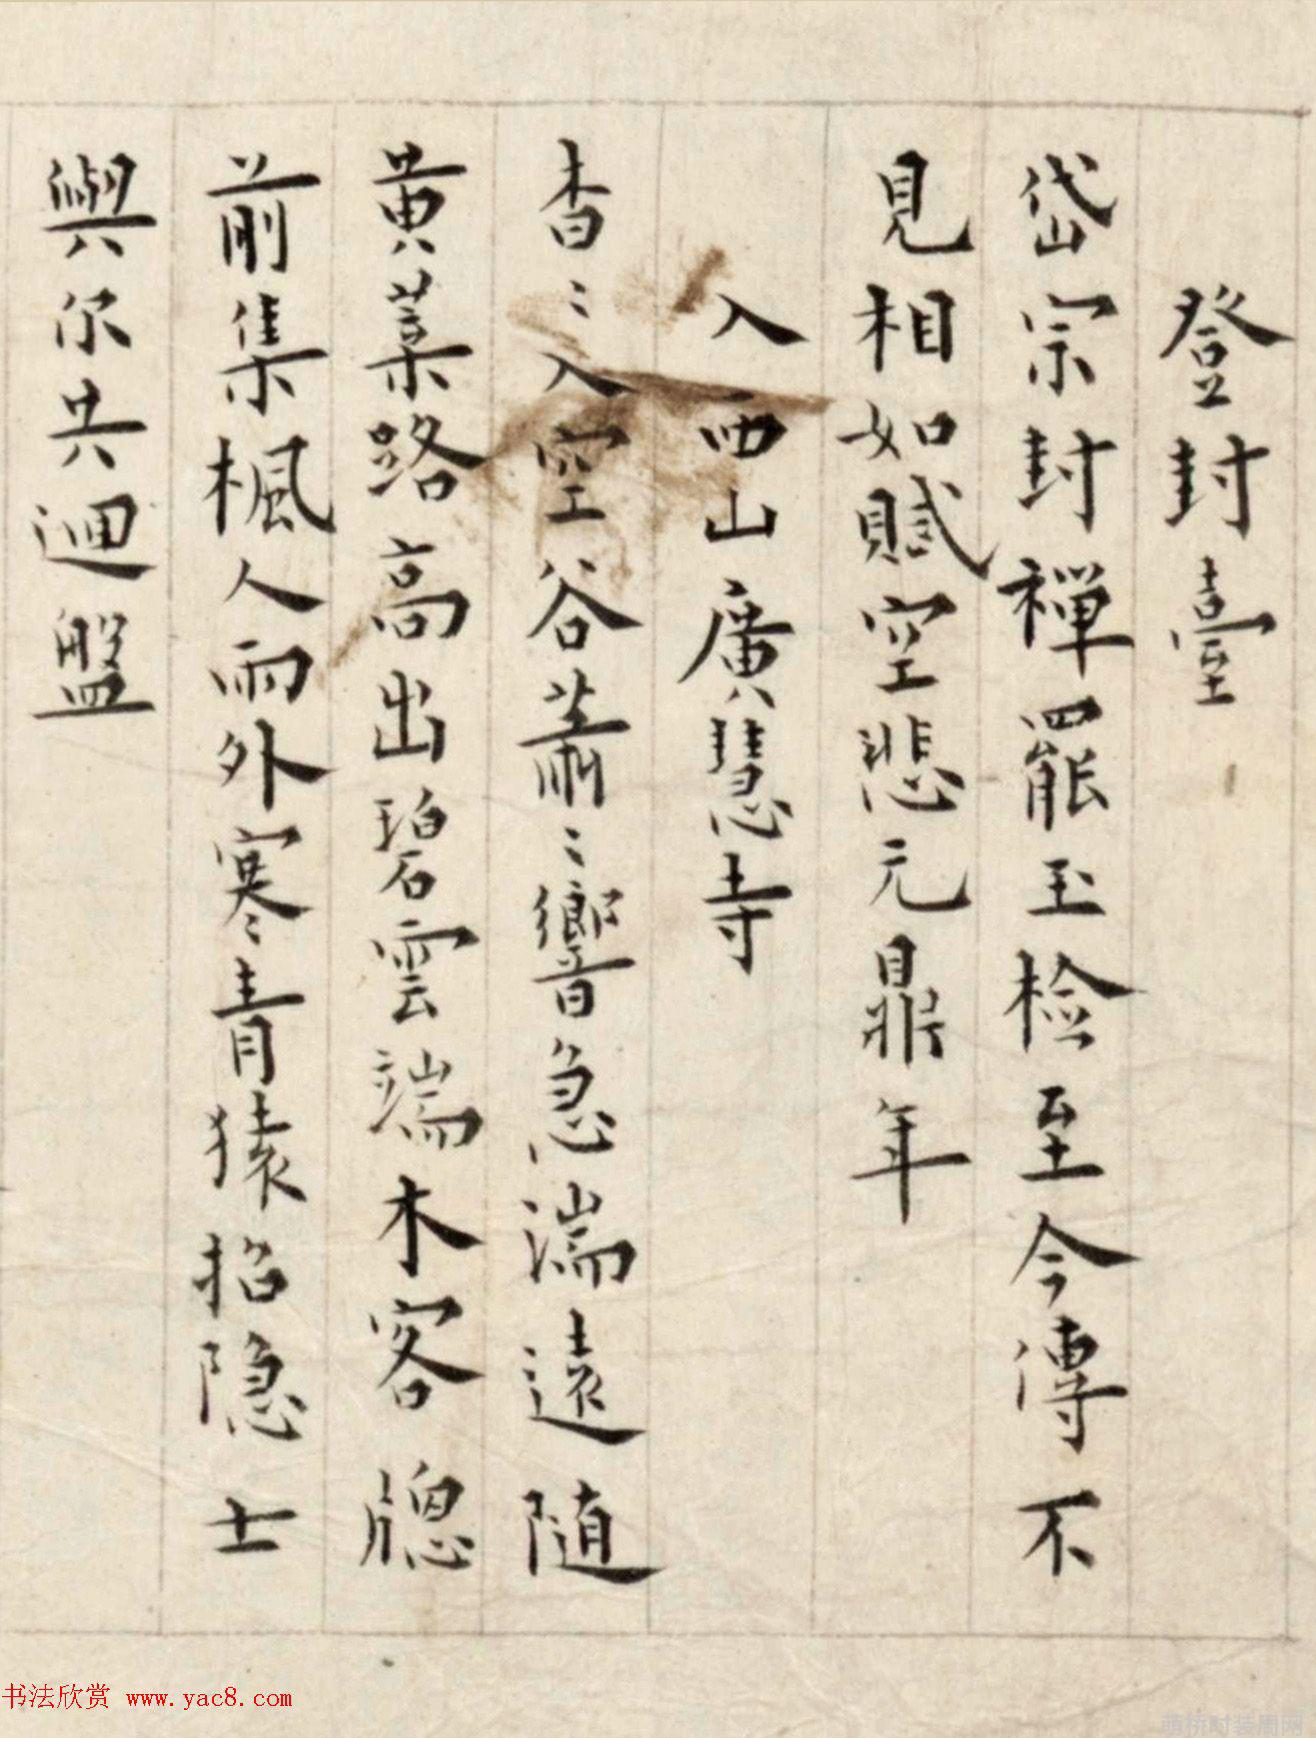 登封臺
岱宗封禅罷玉检至今傳不
見相如賦空悲元鼎年
入西山廣慧寺
杳〻入空谷蕭〻響急湍遠随
黄葉路高出碧雲端木客牕
前集楓人雨外寒青猿招隐士
與尔共迴盤
书法欣赏 www.yac8.com
萌桥时装周网